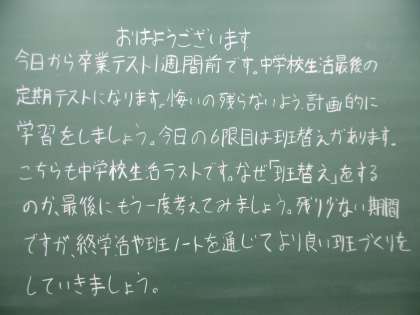 おはようございます
今日から卒業テスト1週間前です。中学校生活最後の
定期テストになります。悔いの残らないよう、計画的に
学習をしましょう。今日の6限目は班替えがあります。
こちらも中学校生活ラストです。なぜ「班替え」をする
のか、最後にもう一度考えてみましょう。残り少ない期間
ですが、終学活や班ノートを通じてより良い班づくりを
していきましょう。